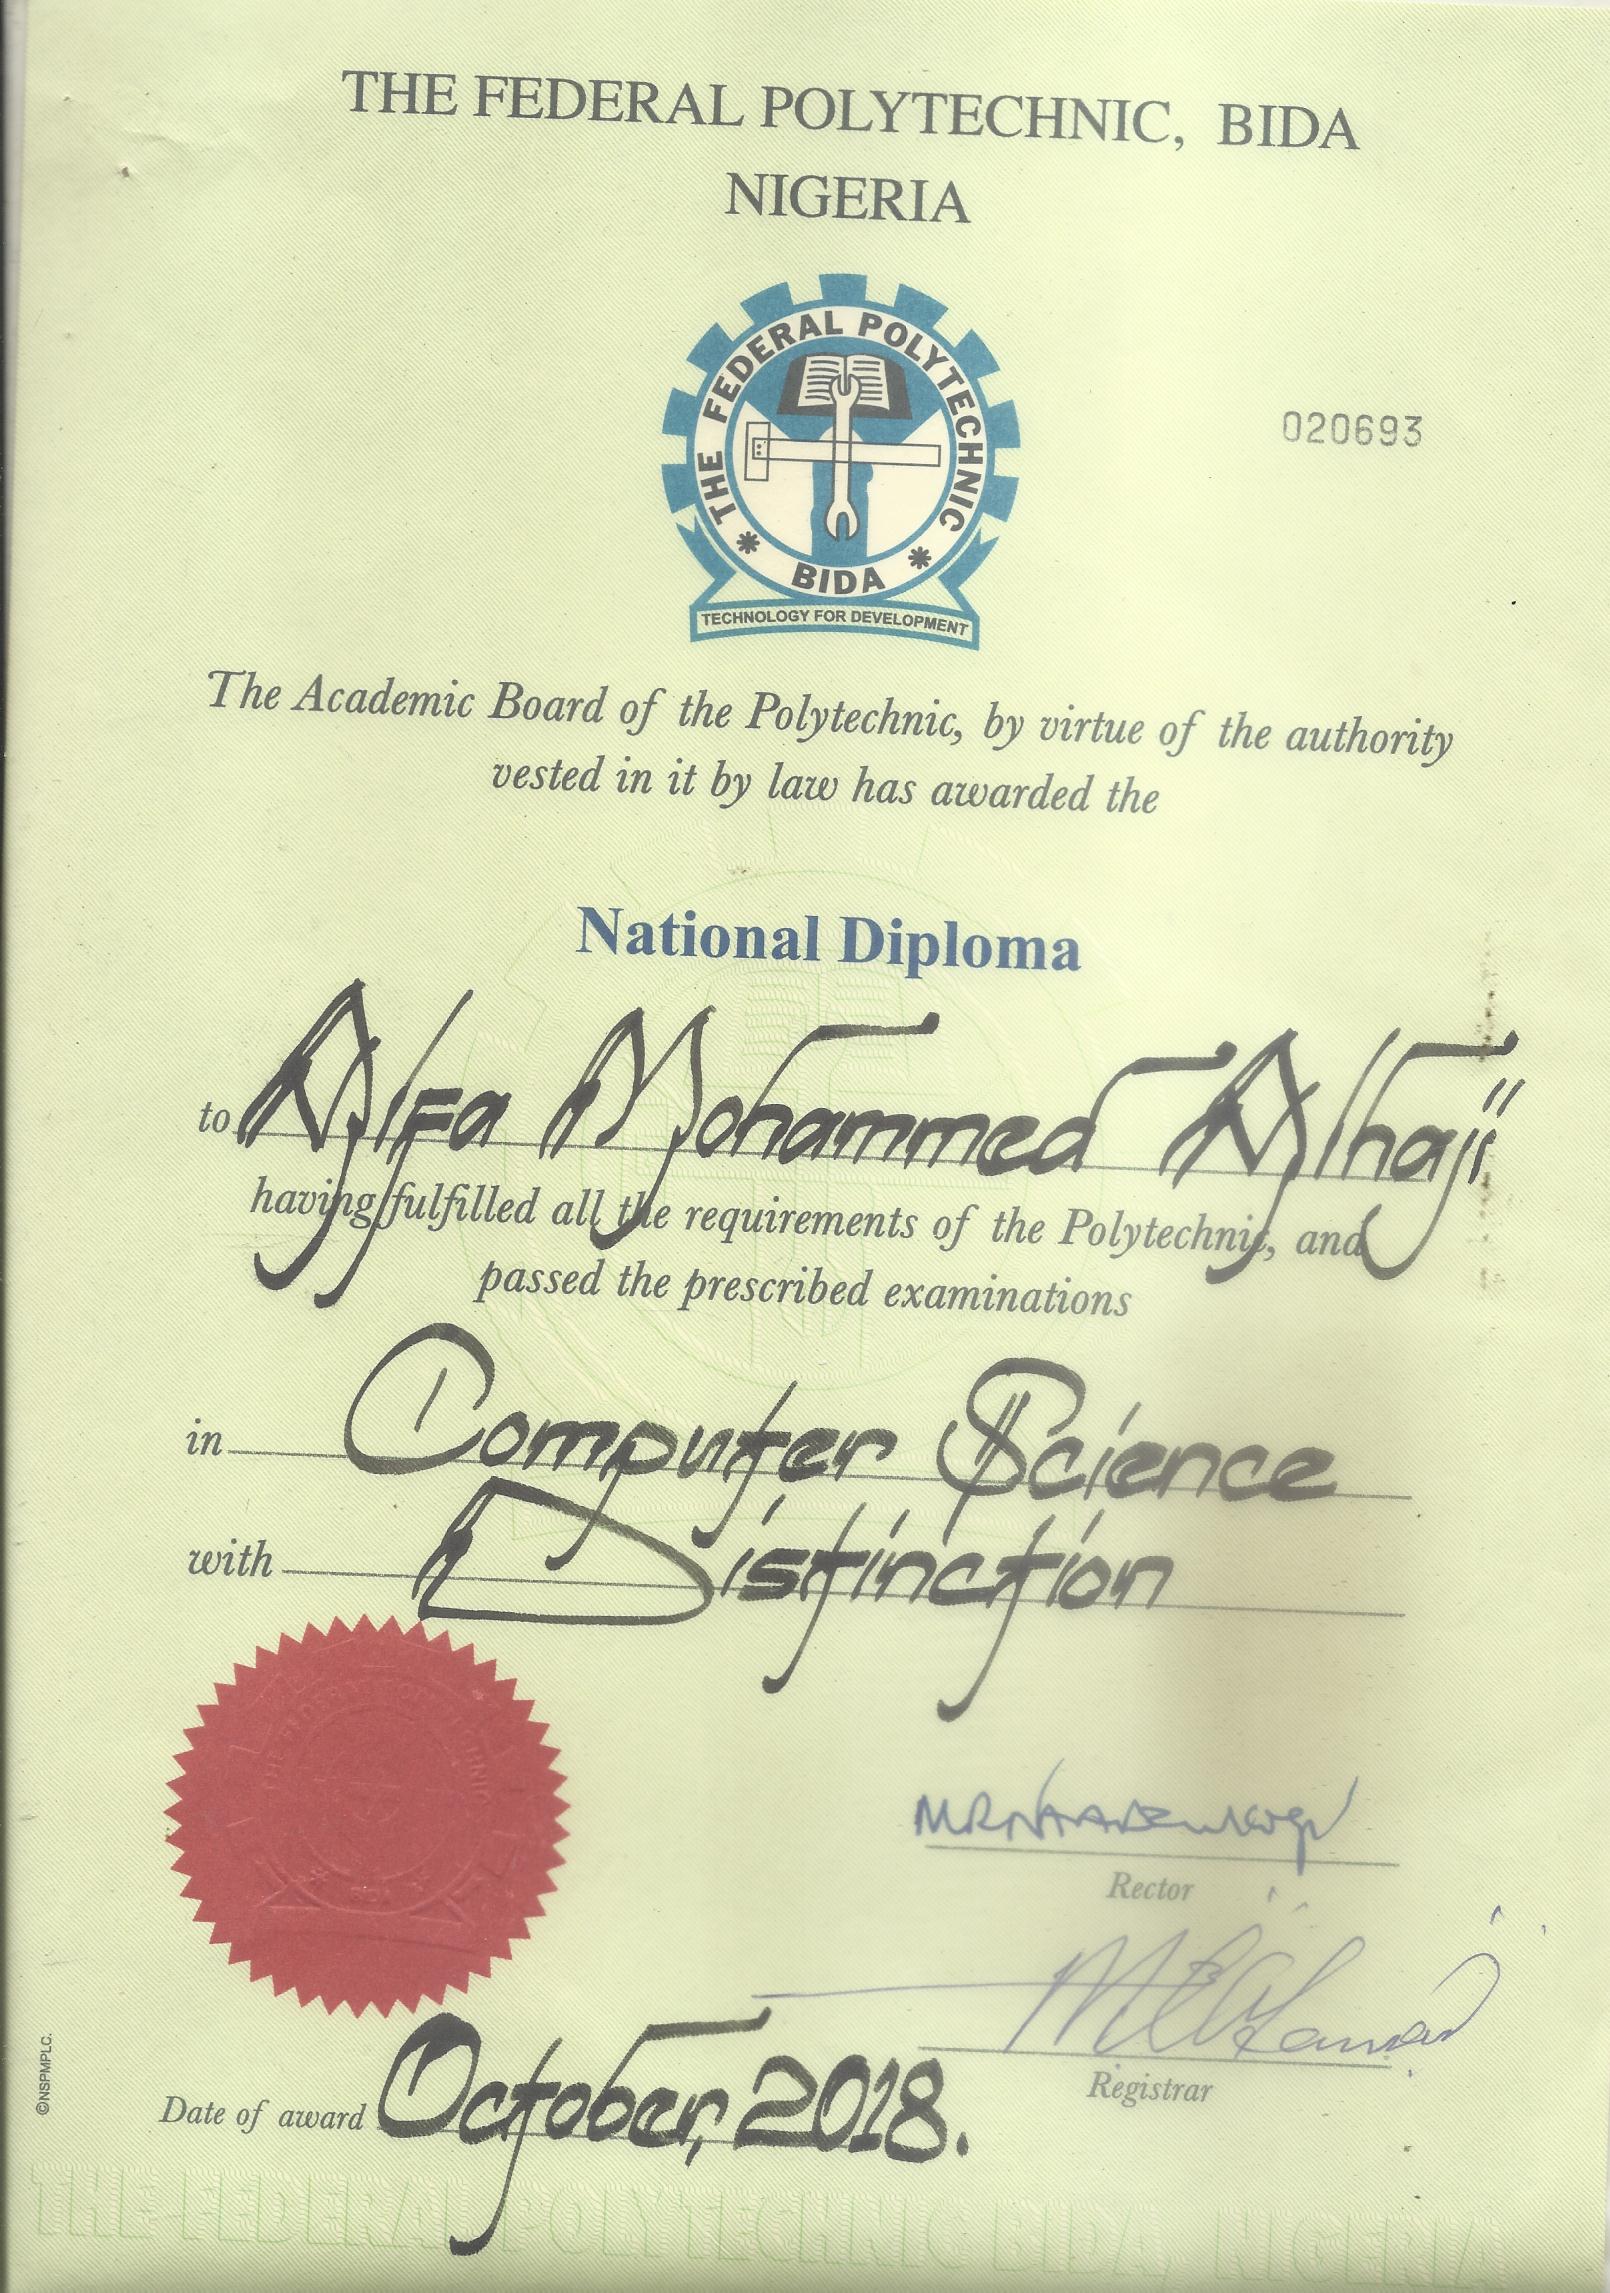 THE FEDERAL POLYTECHNIC, BIDA
NIGERIA
THE FEDERAL POLYTECHNIC
BIDA
TECHNOLOGY FOR DEVELOPMENT
020693
The Academic Board of the Polytechnic, by virtue of the authority
vested in it by law has awarded the
National Diploma
to Alfa Mohammed Alhaji
having fulfilled all the requirements of the Polytechnic, and
passed the prescribed examinations
in Computer Science
with Distinction
Rector
Registrar
Date of award October, 2018.
©NSPMPLC.
THE FEDERAL POLYTECHNIC BIDA, NIGERIA